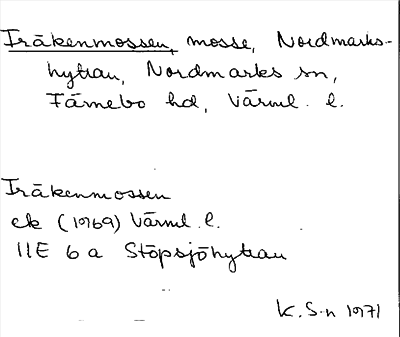 Iråkenmossen, mosse, Nordmarks-
hyttan, Nordmarks sn,
Färnebo hd, Värml. l.
Iråkenmossen
ek (1969) Värml. l.
11E 6a Stöpsjöhyttan
K. S-n 1971